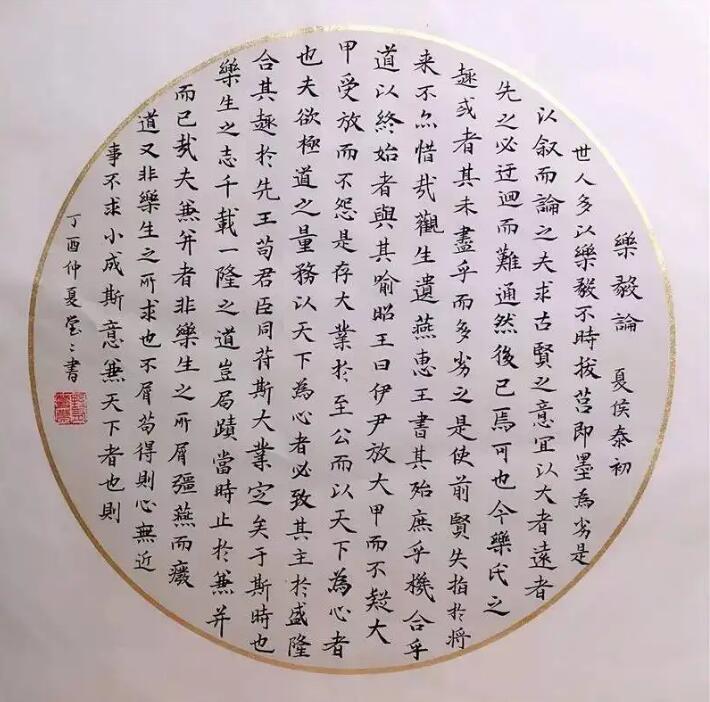 樂毅論 夏侯泰初
世人多以樂毅不時拔莒即墨為劣是
以叙而論之夫求古賢之意宜以大者遠者
先之必迂迴而難通然後已焉可也今樂氏之
趣或者其未盡乎而多劣之是使前賢失指於將
来不亦惜哉觀生遺燕惠王書其殆庶乎機合乎
道以終始者與其喻昭王曰伊尹放大甲而不疑大
甲受放而不怨是存大業於至公而以天下為心者
也夫欲極道之量務以天下為心者必致其主於盛隆
合其趣於先王苟君臣同苻斯大業定矣于斯時也
樂生之志千載一隆之道豈局蹟當時止於兼并
而已哉夫兼并者非樂生之所屑彊燕而廢
道又非樂生之所求也不屑苟得則心無近
事不求小成斯意兼天下者也則
丁酉仲夏莹〻書